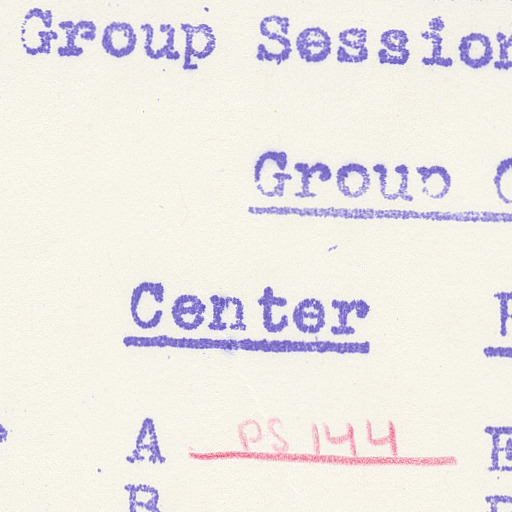 Group Session
Group
Center
A PS 144
B